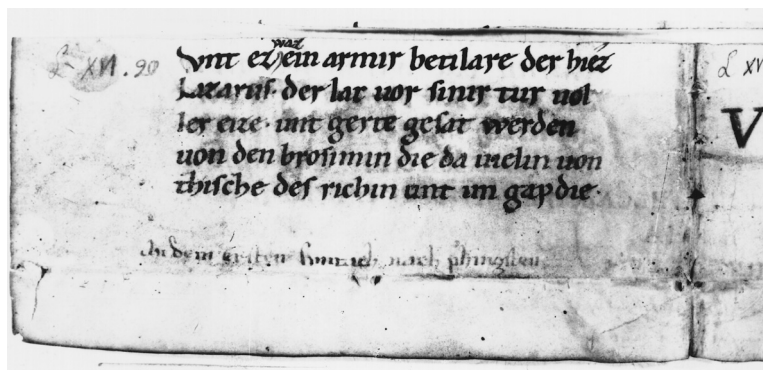 L XVI. 20
waz
vnt ez ein armir betilare der hiez
Lazarus. der lac uor sinir tur uol
ler eize. unt gerte gesat werden
uon den brosimin die da uielin uon
thische des richin unt im gap die.
an dem ersten suntach nach phingsten
L XV
V